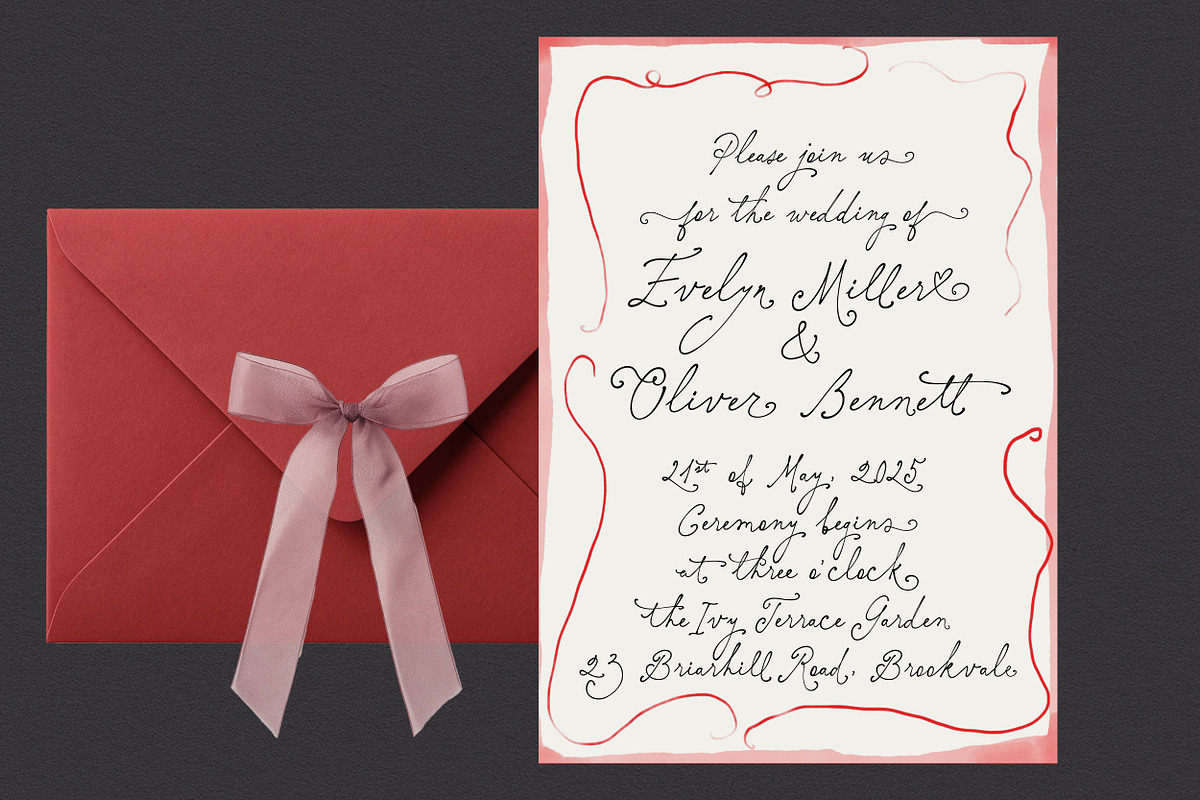 Please join us
for the wedding of
Evelyn Miller
&
Oliver Bennett
21st of May, 2025
Ceremony begins
at three o'clock
the Ivy Terrace Garden
23 Briarhill Road, Brookvale